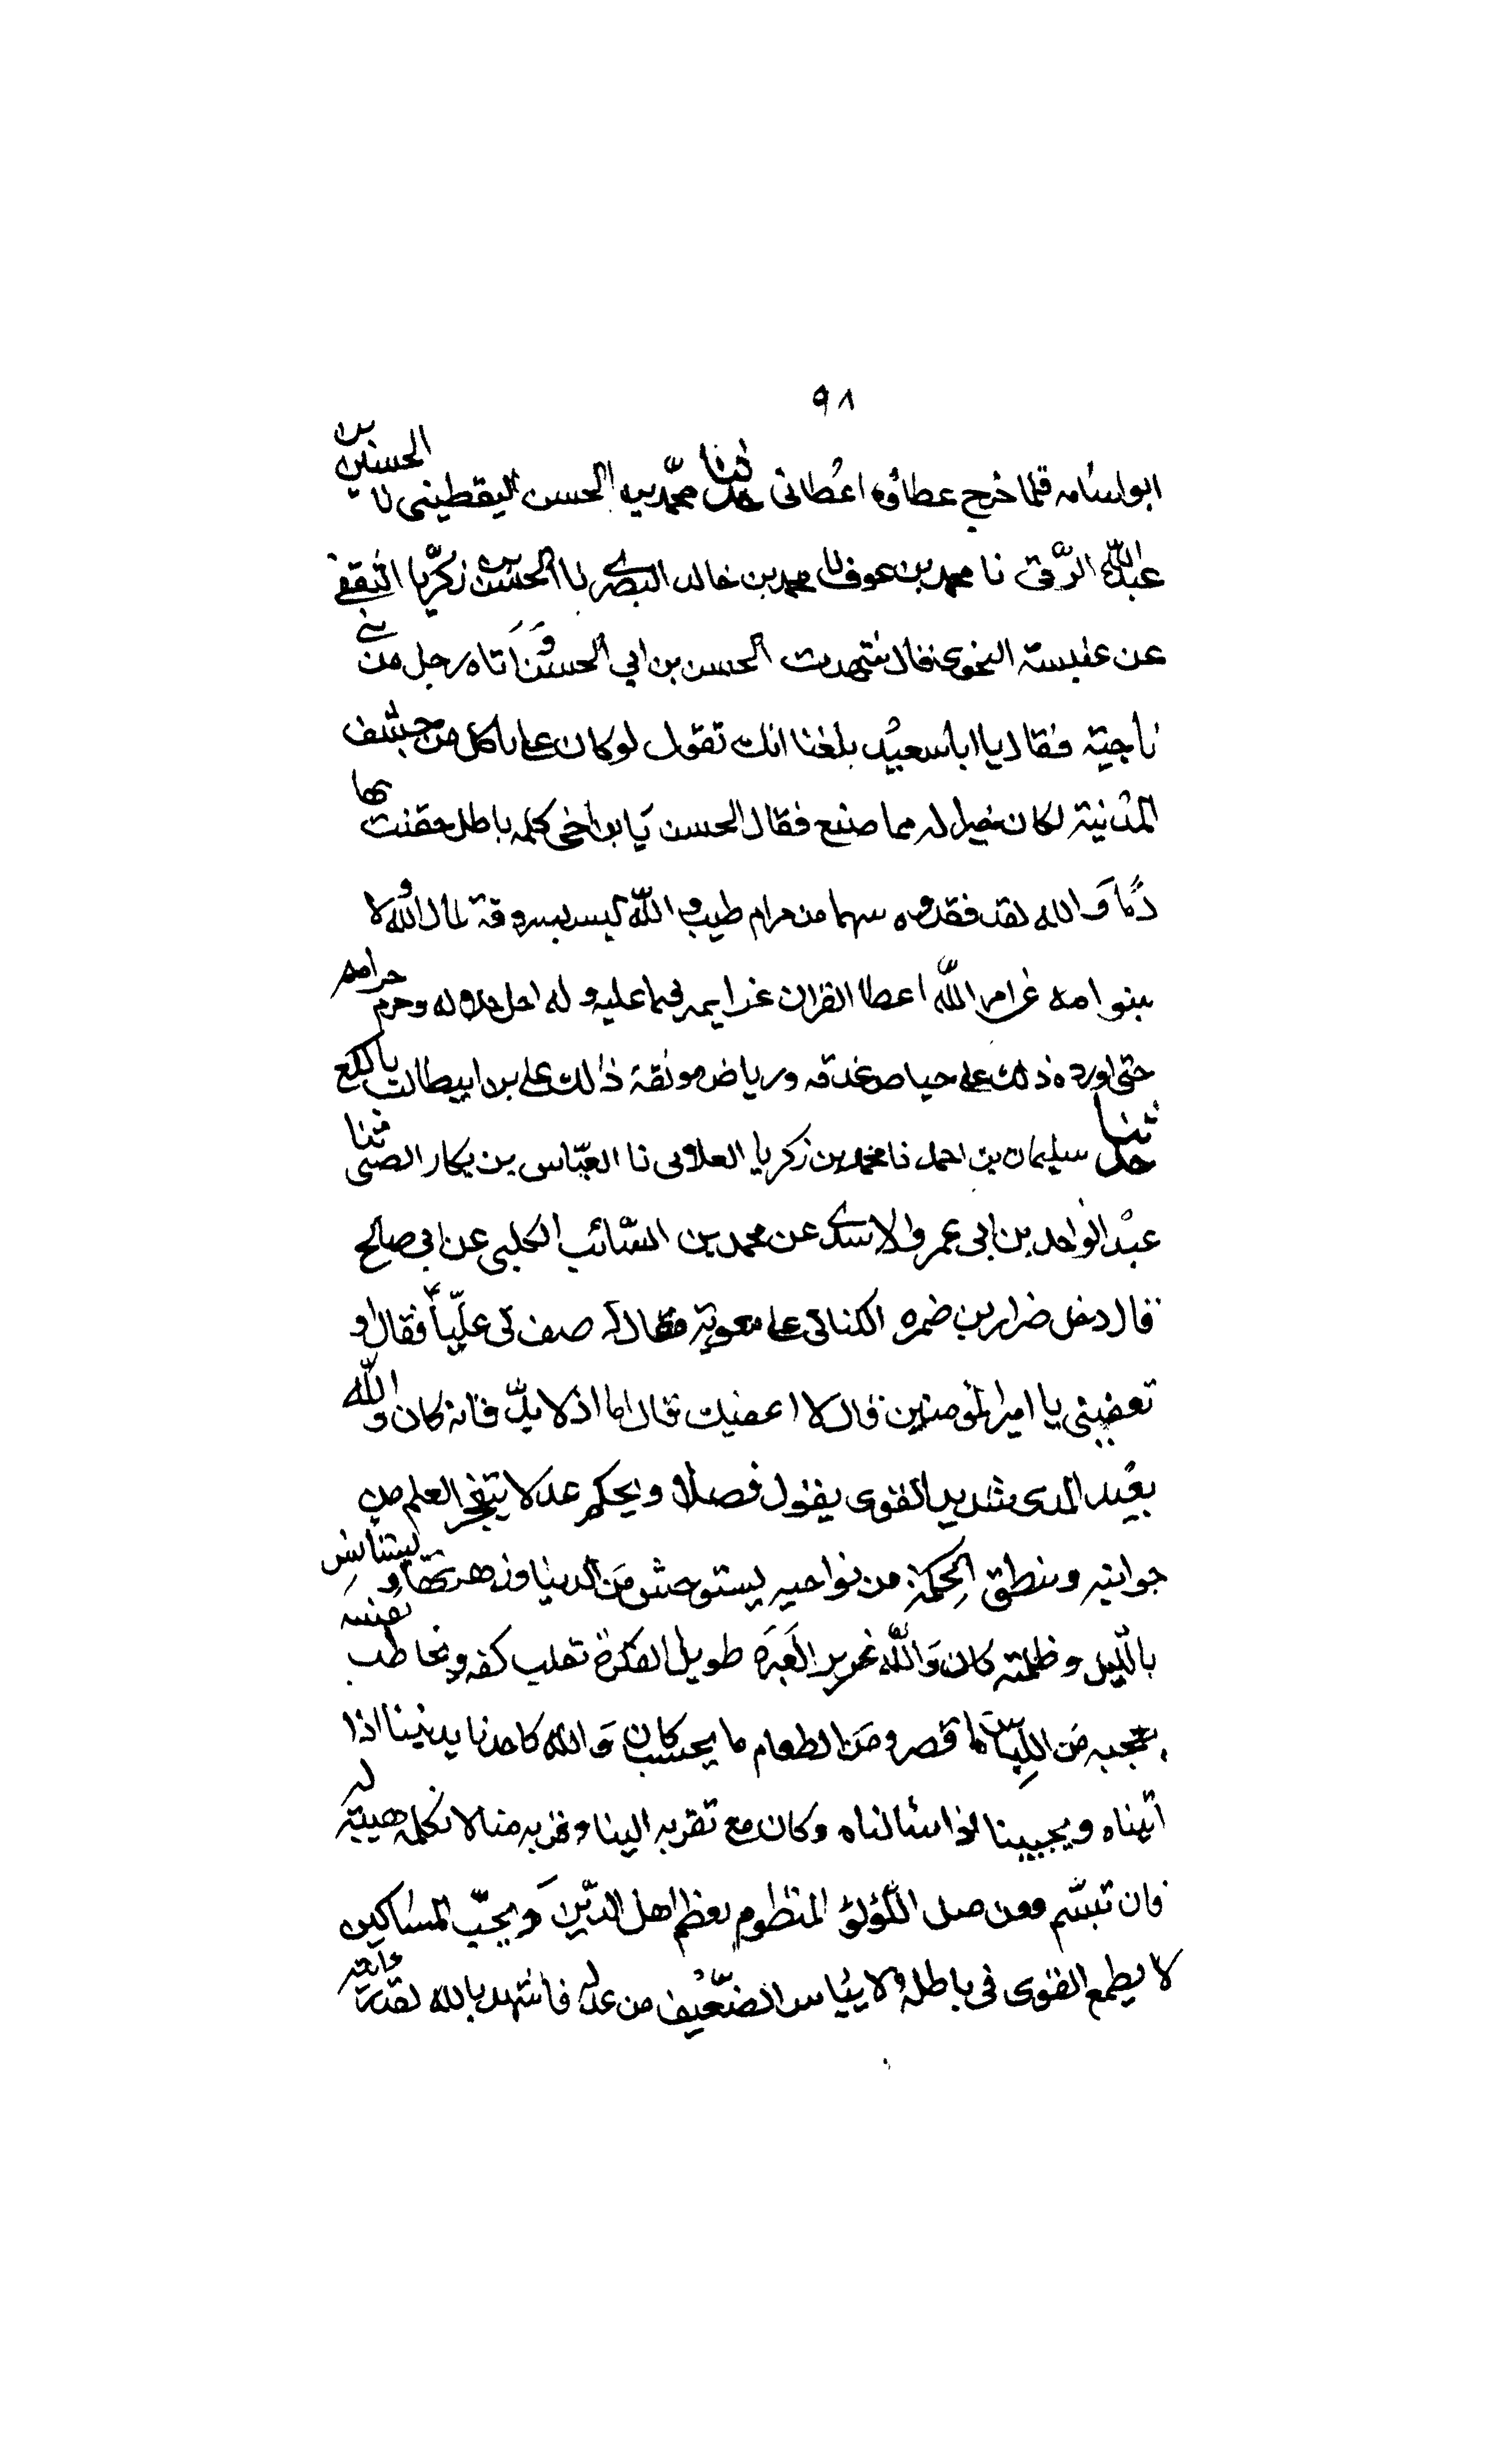 ٩٨
ابو اسامه فلما خرج عطاؤه اعطانى حدثنا محمّد بن الحسن اليقطينى نا الحسين بن
عبد الله الرّقى نا محمد بن عوف نا محمد بن خالد البصرى نا الحسن بن زكريّا الثقفى
عن عنبسة النحوى قال شهدت الحسن بن ابي الحسن وَاَتاه رجل من بنى
ناجية فقال يا ابا سعيد بلغنا انك تقول لو كان على ياكل من حشف
المدنية لكان خيرا له مما صنع فقال الحسن يَا بن اخى كلمه باطل حقنت بها
دمًا وَالله لقد فقدوه سهما من مرام طيب والله ليس بسروقة لمال الله ولا
بنوامه غرامر الله اعطا القران عزايمه فيما عليه و له احل حلاله وحرم حرامه
حتى اورده ذلك على حياض غدقه ورياض مونقة ذالك على بن ابيطالب يا لكع
حدثنا سليمان بن احمد نا محمد بن زكريا الغلابى نا العبّاس بن بكار الضبى ثنا
عبد الواحد بن ابى عمرو الاسدى عن محمد بن السّائب الكلبى عن ابي صالح
قال دخل ضرار بن ضمره الكنانى على معوية فقال له صف لى عليّاً فقال او
تعفينى يا امير المؤمنين قال لا اعفيك قال اما اذ لا بدّ فانه كان والله
بعيد المدى شديد القوى يقول فصلا ويحكم عدلا يتفجر العلم من
جوانبه وينطق الحِكمة من نواحيه يستوحش مَن الدنيا وزهرتها و يستانس
بالليل وظلمته كان وَاللّٰه غرير العَبَرَة طويل الفكرة تقلب كفه ويخاطب نفسه
يعجبه مَن اللِباس ما قصر ومَن الطعام ما يحسب كان وَالله كاحدنا يدنينا اذا
اتيناه ويجيبنا اذا سالناه وكان مع تقربه الينا وقربه منا لا نكلمه هيبة له
فان تبسّم فعن مثل اللّؤلؤ المنظوم يعظم اهل الدّينَ ويحبّ المساكين
لا يطمع القوى فى باطله ولا يياس الضّعيف من عدله فاشهد بالله لقد رايته